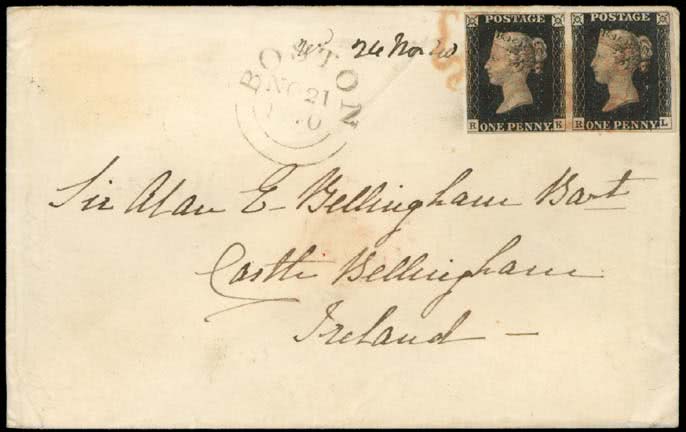 24 Nov 40
BOSTON
NO 21
POSTAGE POSTAGE
R K R L
ONE PENNY ONE PENNY
Sir Alan E. Bellingham Bart
Castle Bellingham
Ireland —